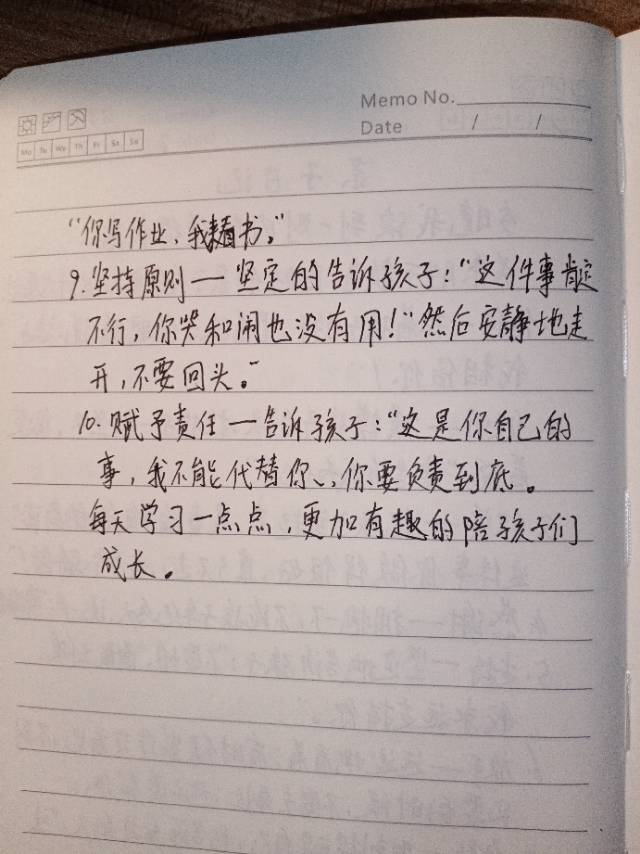 Memo No.
Date / /
Mo Tu We Th Fr Sa Su
“你写作业，我看书。”
9.坚持原则——坚定的告诉孩子：“这件事肯定
不行，你哭和闹也没有用！”然后安静地走
开，不要回头。”
10.赋予责任——告诉孩子：“这是你自己的
事，我不能代替你，你要负责到底。
每天学习一点点，更加有趣的陪孩子们
成长。